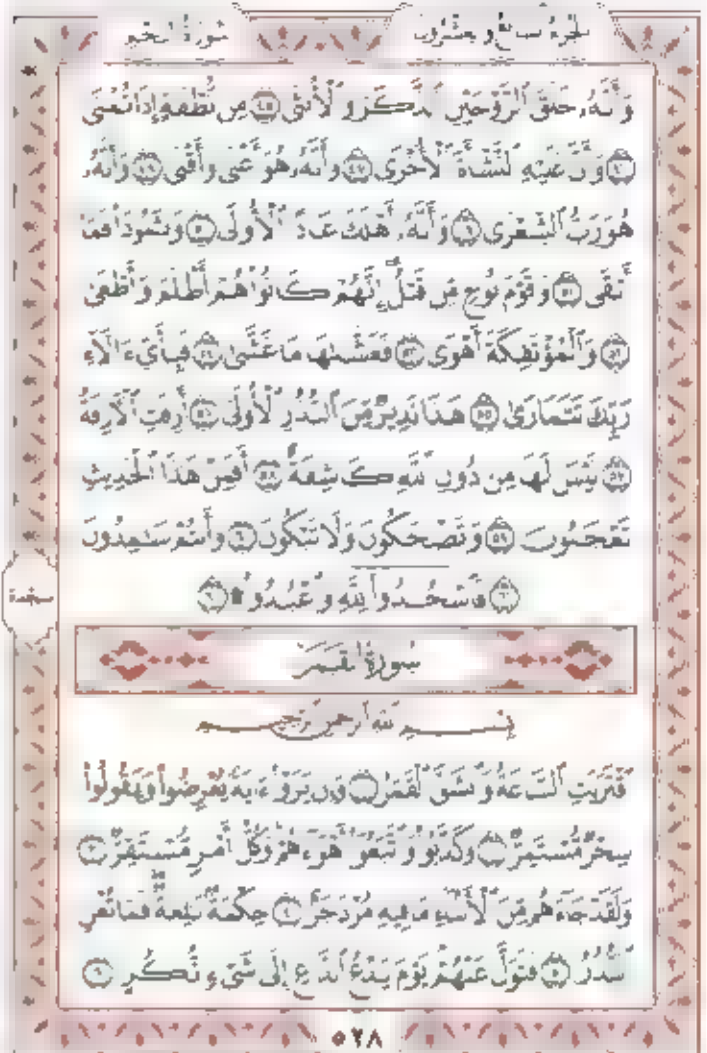 الجزء السابع والعشرون
سورة النجم
وَأَنَّهُۥ خَلَقَ ٱلزَّوْجَيْنِ ٱلذَّكَرَ وَٱلْأُنثَىٰ ٤٥ مِن نُّطْفَةٍ إِذَا تُمْنَىٰ
٤٦ وَأَنَّ عَلَيْهِ ٱلنَّشْأَةَ ٱلْأُخْرَىٰ ٤٧ وَأَنَّهُۥ هُوَ أَغْنَىٰ وَأَقْنَىٰ ٤٨ وَأَنَّهُۥ
هُوَ رَبُّ ٱلشِّعْرَىٰ ٤٩ وَأَنَّهُۥٓ أَهْلَكَ عَادًا ٱلْأُولَىٰ ٥٠ وَثَمُودَا۟ فَمَآ
أَبْقَىٰ ٥١ وَقَوْمَ نُوحٍ مِّن قَبْلُ إِنَّهُمْ كَانُوا۟ هُمْ أَظْلَمَ وَأَطْغَىٰ
٥٢ وَٱلْمُؤْتَفِكَةَ أَهْوَىٰ ٥٣ فَغَشَّىٰهَا مَا غَشَّىٰ ٥٤ فَبِأَىِّ ءَالَآءِ
رَبِّكَ تَتَمَارَىٰ ٥٥ هَٰذَا نَذِيرٌ مِّنَ ٱلنُّذُرِ ٱلْأُولَىٰٓ ٥٦ أَزِفَتِ ٱلْءَازِفَةُ
٥٧ لَيْسَ لَهَا مِن دُونِ ٱللَّهِ كَاشِفَةٌ ٥٨ أَفَمِنْ هَٰذَا ٱلْحَدِيثِ
تَعْجَبُونَ ٥٩ وَتَضْحَكُونَ وَلَا تَبْكُونَ ٦٠ وَأَنتُمْ سَٰمِدُونَ
٦١ فَٱسْجُدُوا۟ لِلَّهِ وَٱعْبُدُوا۟ ۩ ٦٢
سجدة
سورة القمر
بِسْمِ ٱللَّهِ ٱلرَّحْمَٰنِ ٱلرَّحِيمِ
ٱقْتَرَبَتِ ٱلسَّاعَةُ وَٱنشَقَّ ٱلْقَمَرُ ١ وَإِن يَرَوْا۟ ءَايَةً يُعْرِضُوا۟ وَيَقُولُوا۟
سِحْرٌ مُّسْتَمِرٌّ ٢ وَكَذَّبُوا۟ وَٱتَّبَعُوٓا۟ أَهْوَآءَهُمْ وَكُلُّ أَمْرٍ مُّسْتَقِرٌّ ٣
وَلَقَدْ جَآءَهُم مِّنَ ٱلْأَنۢبَآءِ مَا فِيهِ مُزْدَجَرٌ ٤ حِكْمَةٌۢ بَٰلِغَةٌ فَمَا تُغْنِ
ٱلنُّذُرُ ٥ فَتَوَلَّ عَنْهُمْ يَوْمَ يَدْعُ ٱلدَّاعِ إِلَىٰ شَىْءٍ نُّكُرٍ ٦
٥٢٨